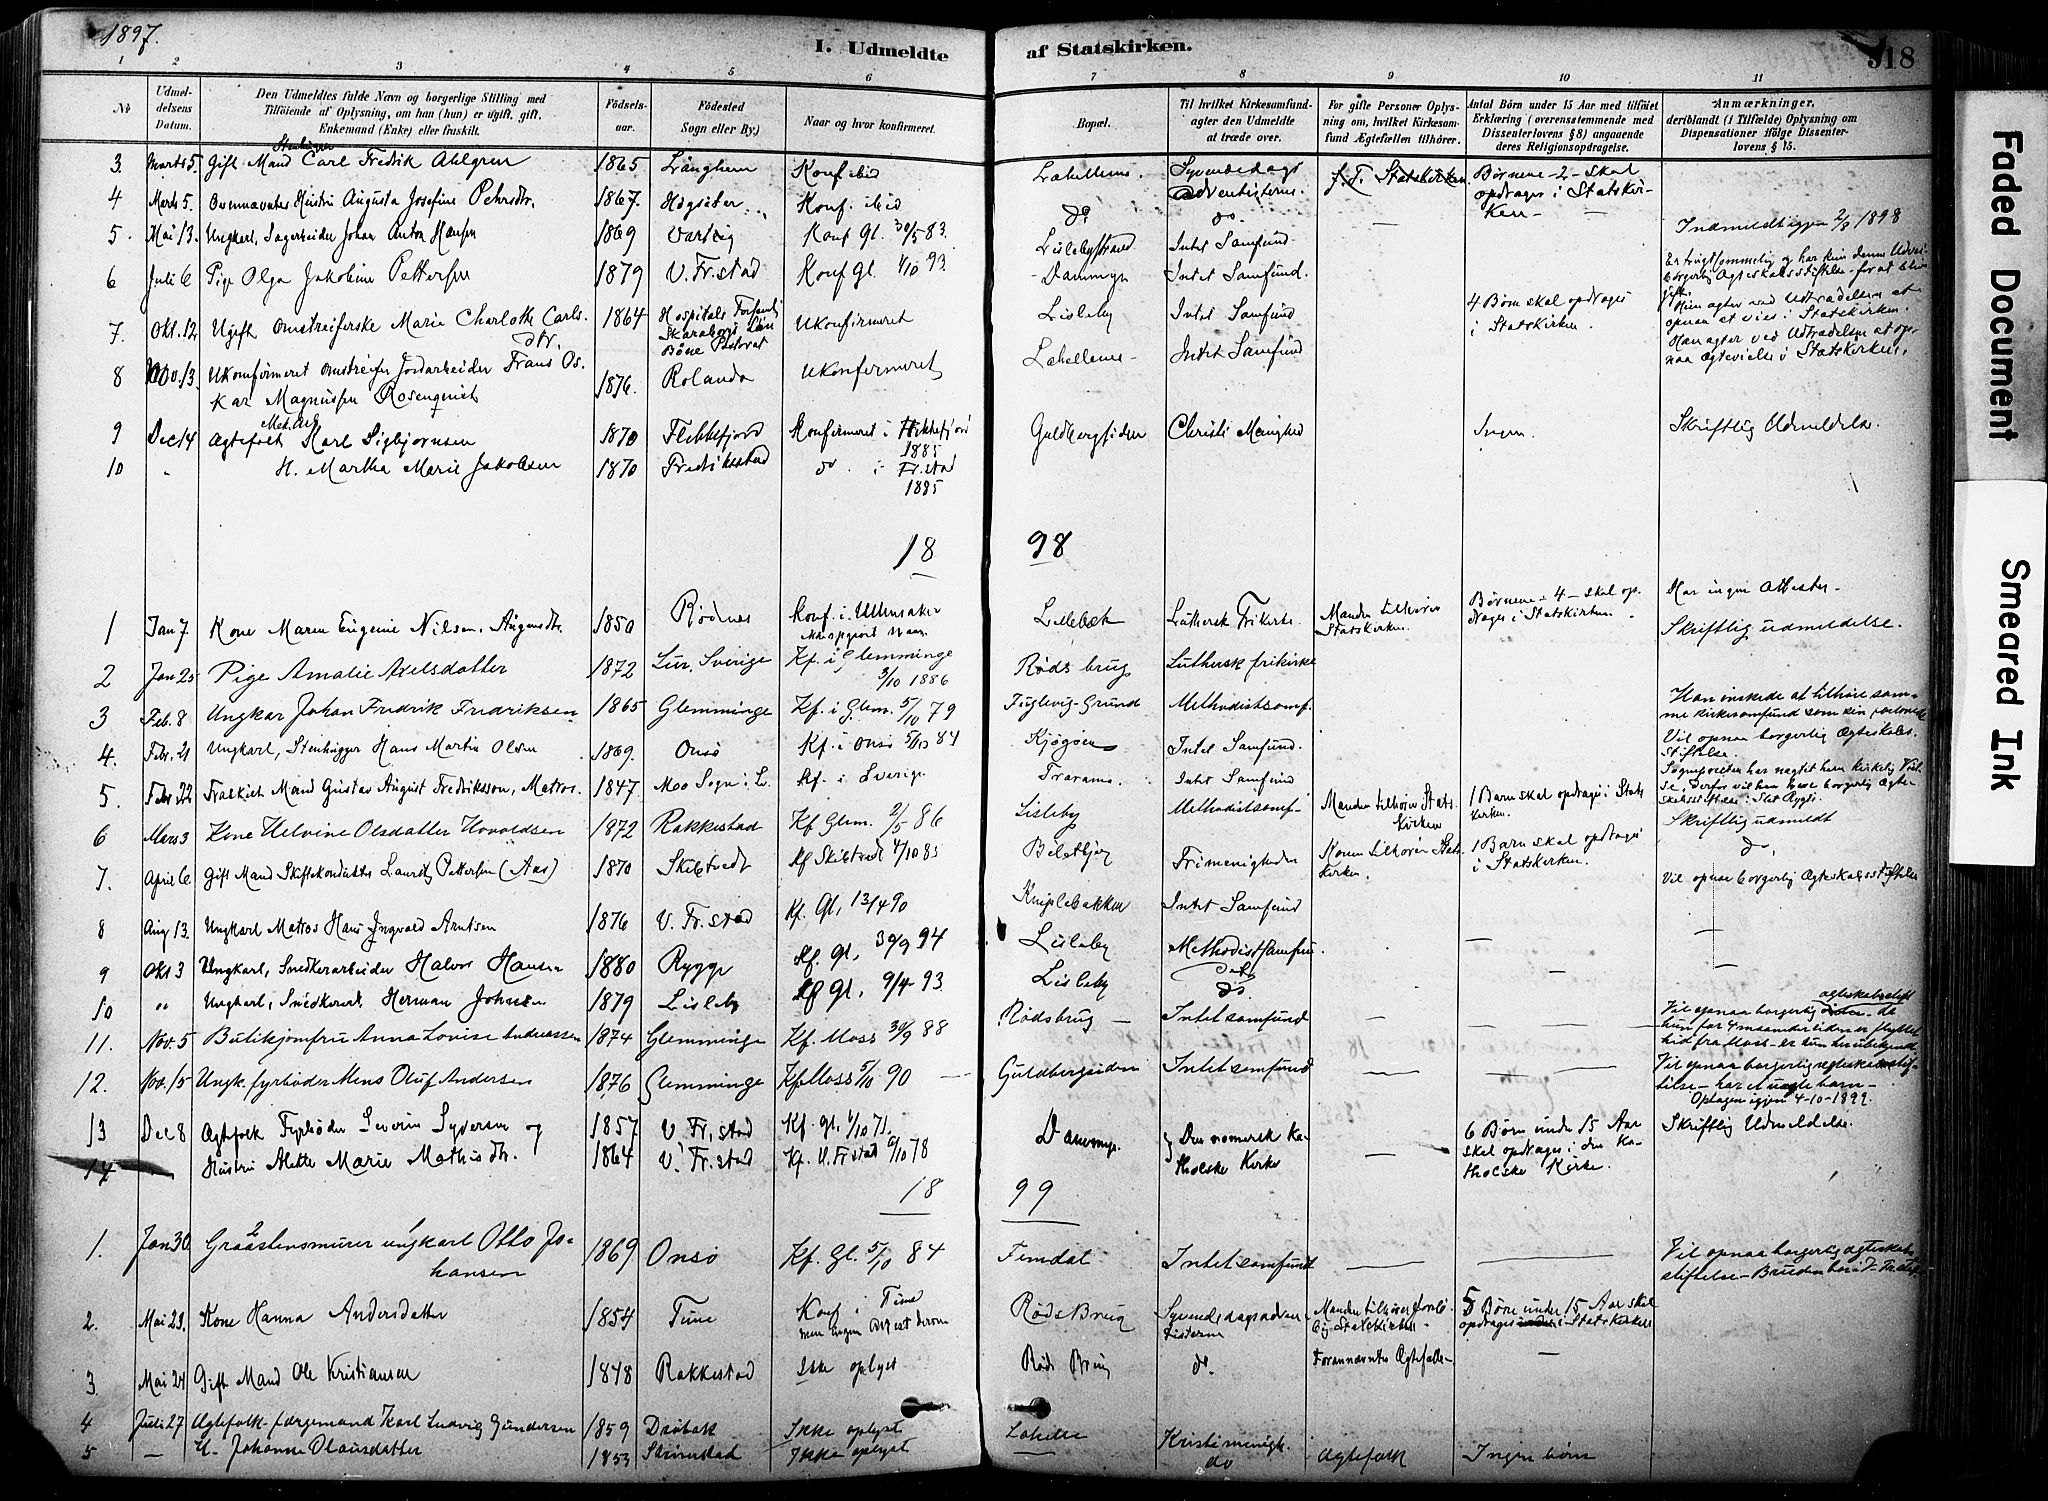 1897.
I. Udmeldte af Statskirken.
318
1 2 3 4 5 6 7 8 9 10 11
No
Udmeldelsens Datum.
Den Udmeldtes fulde Navn og borgerlige Stilling med Tilføiende af Oplysning, om han (hun) er ugift, gift, Enkemand (Enke) eller fraskilt.
Fødselsaar.
Fødested Sogn eller By)
Naar og hvor konfirmeret.
Bopæl.
Til hvilket Kirkesamfund agter den Udmeldte at træde over.
For gifte Personer Oplysning om, hvilket Kirkesamfund Ægtefællen tilhører.
Antal Børn under 15 Aar med tilføiet Erklæring (overensstemmende med Dissenterlovens § 8) angaaende deres Religionsopdragelse.
Anmærkninger, deriblandt (i Tilfælde) Oplysning om Dispensationer ifølge Dissenterlovens § 15.
3. Marts 5. Gift Mand Stenhugger Carl Fredrik Ahlgren 1865 Länghem Konf. ibid Lahellene. Syvendedags Adventisterne. f. T. Statskirken. Børnene - 2 - skal opdrages i Statskirken
4 Marts 5. Ovennævntes Hustru Augusta Josefine Pehrsdtr. 1867. Högsäter Konf. ibid do do. —
5 Mai 13. Ungkarl, Sagarbeider Johan Anton Hansen 1869 Varteig Konf Gl. 30/5 83. Lislebystrand Intet Samfund. Indmeldt igjen 2/8 1898
6 Juli 6 Pige Olga Jakobine Pettersen 1879 V. Fr.stad Konf Gl. 1/10 93. Dammyr Intet Samfund. Er frugtsommelig og har kun denne Udvei borgerlig Ægteskabsstiftelse for at blive gift.
7. Okt. 12 Ugift Omstreiferske Marie Charlotte Carlsdtr. 1864 Hospitals Forsamlj Skaraborgs Län Böne Pastorat Ukonfirmeret Lisleby Intet Samfund 4 Børn skal opdrages i Statskirken. Hun agter ved Udtrædelsen at opnaa at vies i Statskirken.
8 Nov. 13. Ukonfirmeret Omstreifer Jordarbeider Frans Oskar Magnussen Rosenqvist 1876. Rolanda Ukonfirmeret Lahellene Intet Samfund Han agter ved Udtrædelse at opnaa Ægtevielse i Statskirken.
9 Dec 14 Ægtefolk Met. Arb. Karl Sigbjørnsen 1870 Flekkefjord Konfirmeret i Flekkefjord 1885 Guldbergsiden Christi Menighed Ingen. Skriftlig Udmeldelse.
10 " H. Martha Marie Jakobsen 1870 Fredriksstad do. i Fr.stad 1885
18 98
1 Jan 7 Kone Maren Eugenie Nilsen, Augensdtr. 1850 Rødnes Konf. i Ullensaker Lillebæk Luthersk Frikirke. Manden tilhører Statskirken. Børnene - 4 - skal opdrages i Statskirken. Har ingen Attester. Skriftlig udmeldelse.
2 Jan 25 Pige Amalie Axelsdatter 1872 Lur, Sverige Kf. i Glemminge 3/10 1886 Røds brug Luthersk frikirke
3 Feb. 8 Ungkar Johan Fredrik Fredriksen 1865 Glemminge Kf. i Glem. 5/10 79 Fuglevig-Grund Methodistsamf. Han ønskede at tilhøre samme kirkesamfund som sin forlovede
4. Febr. 21 Ungkarl, Stenhugger Hans Martin Olsen 1869. Onsø Kf. i Onsø 5/10 84 Kjøgøen Intet Samfund. Vil opnaa borgerlig Ægteskabsstiftelse.
5. Febr 22 Fraskilt Mand Gustav August Fredriksson, Matros. 1847. Moo Sogn i Kf. i Sverige Traranø. Intet Samfund Sogneprester har nægtet ham kirkelig Vielse, derfor vil han have borgerlig Ægteskabsstiftelse i
6 Marts 3 Kone Helvine Olsdatter Hovoldsen 1872 Rakkestad Kf. Glem. 2/5 86 Lisleby Methodistsamf. Manden tilhører Statskirken 1 Barn skal opdrages i Statskirken. Skriftlig udmeldt
7. April 6 Gift Mand Skiftekonduktør Lauritz Pettersen (Aas) 1870 Skibtvedt Kf Skibtvedt 4/10 85 Frimenigheden Konen tilhører Statskirken. 1 Barn skal opdrages i Statskirken. do.
8 Aug 13. Ungkarl Matros Hans Ingvald Arntsen 1876 V. Fr.stad Kf. Gl. 13/4 90 Kniplebakken Intet Samfund Vil opnaa borgerlig Ægteskabsstiftelse
9 Okt 3 Ungkarl, Snedkerarbeider Halvor Hansen 1880 Rygge Kf. Gl. 30/9 94 Lisleby Methodistsamfundet — —
10 " Ungkarl, Snedkerarb. Herman Johnsen 1879 Lisleby Kf Gl. 9/4 93. Lisleby do. — —
11. Nov. 5 Butikjomfru Anna Lovise Andreassen 1874 Glemminge Kf. Moss 30/9 88 Rødsbrug Intet samfund — — Vil opnaa borgerlig ægteskabsstift da hun for 4 maaneder siden er flyttet hid fra Moss - er hun her ubekjendt
12. Nov. 15 Ungk. fyrbøder Mens Oluf Andersen 1876 Glemminge Kf. Moss 5/10 90 Guldbergsiden Intet samfund — — Vil opnaa borgerlig ægteskabsstiftelse - har et uægte barn - Optagen igjen 4-10-1899.
13 Dec 8 Ægtefolk Fyrbøder Severin Syversen og 1857 V Fr.stad Kf. Gl. 1/10 71. Dammyr. Den romersk Katholske Kirke 6 Børn under 15 Aar skal opdrages i den Katholske Kirke. Skriftlig Udmeldelse.
14 — Hustru Alette Marie Mathisdtr. 1864 V. Fr.stad Kf. V. Fr.stad 6/10 78 —
18 99
1. Jan 30. Graastensmurer ungkarl Otto Johansen 1869 Onsø Kf. Gl. 5/10 84 Femdal Intet samfund — — Vil opnaa borgerlig ægteskabsstiftelse - Bruden bor i V. Fr.stad
2. Mai 23. Kone Hanna Andersdatter 1854 Tune Konf i Tune men ingen Attest derom Røds Brug Syvendedagsadventisterne Manden tilhører foreløbig Statskirken 5 Børn under 15 Aar skal opdrages i Statskirken
3. Mai 24 Gift Mand Ole Kristiansen 1848 Rakkestad Ikke oplyst Røds Brug do. Forannævntes Ægtefælle —
4 Juli 27 Ægtefolk færgemand Karl Ludvig Gundersen 1859 Drøbak Ikke oplyst Lahelle Kristi menigh.
5 — H. Johanne Olausdatter 1853 Skrimstad Ikke oplyst — do Ægtefolk Ingen børn
Faded Document
Smeared Ink